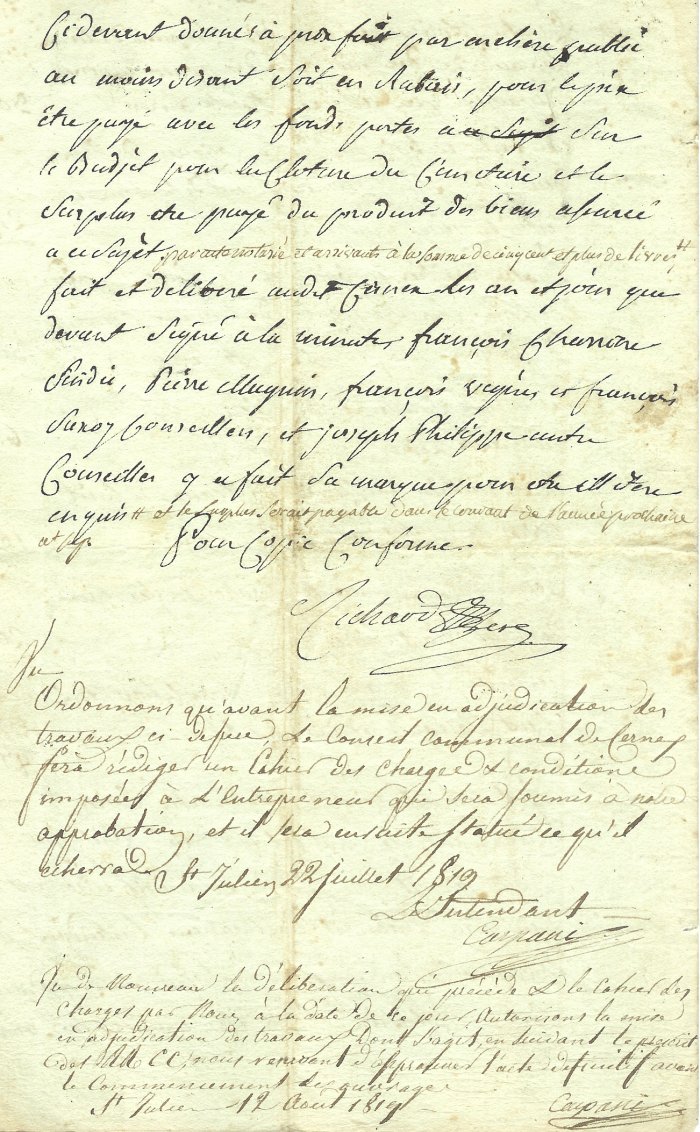 Cidevant donnés à prix fait par enchère publié
au moins disant soit en Rabais, pour le prix
être payé avec les fonds portés a ce Sujet Sur
le Budjet pour la Cloture du Cimetière et le
Surplus etre payé du produit des biens assuré
a ce Sujet, par acte notarié et arrivants à la somme de cinq cent et plus de livres #
fait et déliberé audit Cernex les an et jour que
devant Signé à la minute, françois Charriere
Sindic, Pierre Magnin, françois et françois
Saxod Conseillers, et joseph Philippe autre
Conseiller y a fait Sa marque pour etre illiteré
enquis # et le Surplus Serait payable dans le courant de l'année prochaine
Pour Copie Conforme
Richard
Vu
Ordonnons qu'avant la mise en adjudication des
travaux ci dessus, Le Conseil communal de Cernex
fera rédiger un Cahier des charges & conditions
imposées à L'Entrepreneur qui sera soumis à notre
approbation, et il sera ensuite Statué ce qu'il
écherra. St Julien 22 juillet 1819
L'Intendant
Carpani
Vu de Nouveau la déliberation qui précéde & le Cahier des
Charges par Nous à la date de ce jour, Autorisons la mise
en adjudication des travaux Dont S'agit, en Suivant le prescrit
des CC, nous reservant d'approuver l'acte définitif avant
le Commencement des ouvrages
St Julien 12 Aout 1819
Carpani